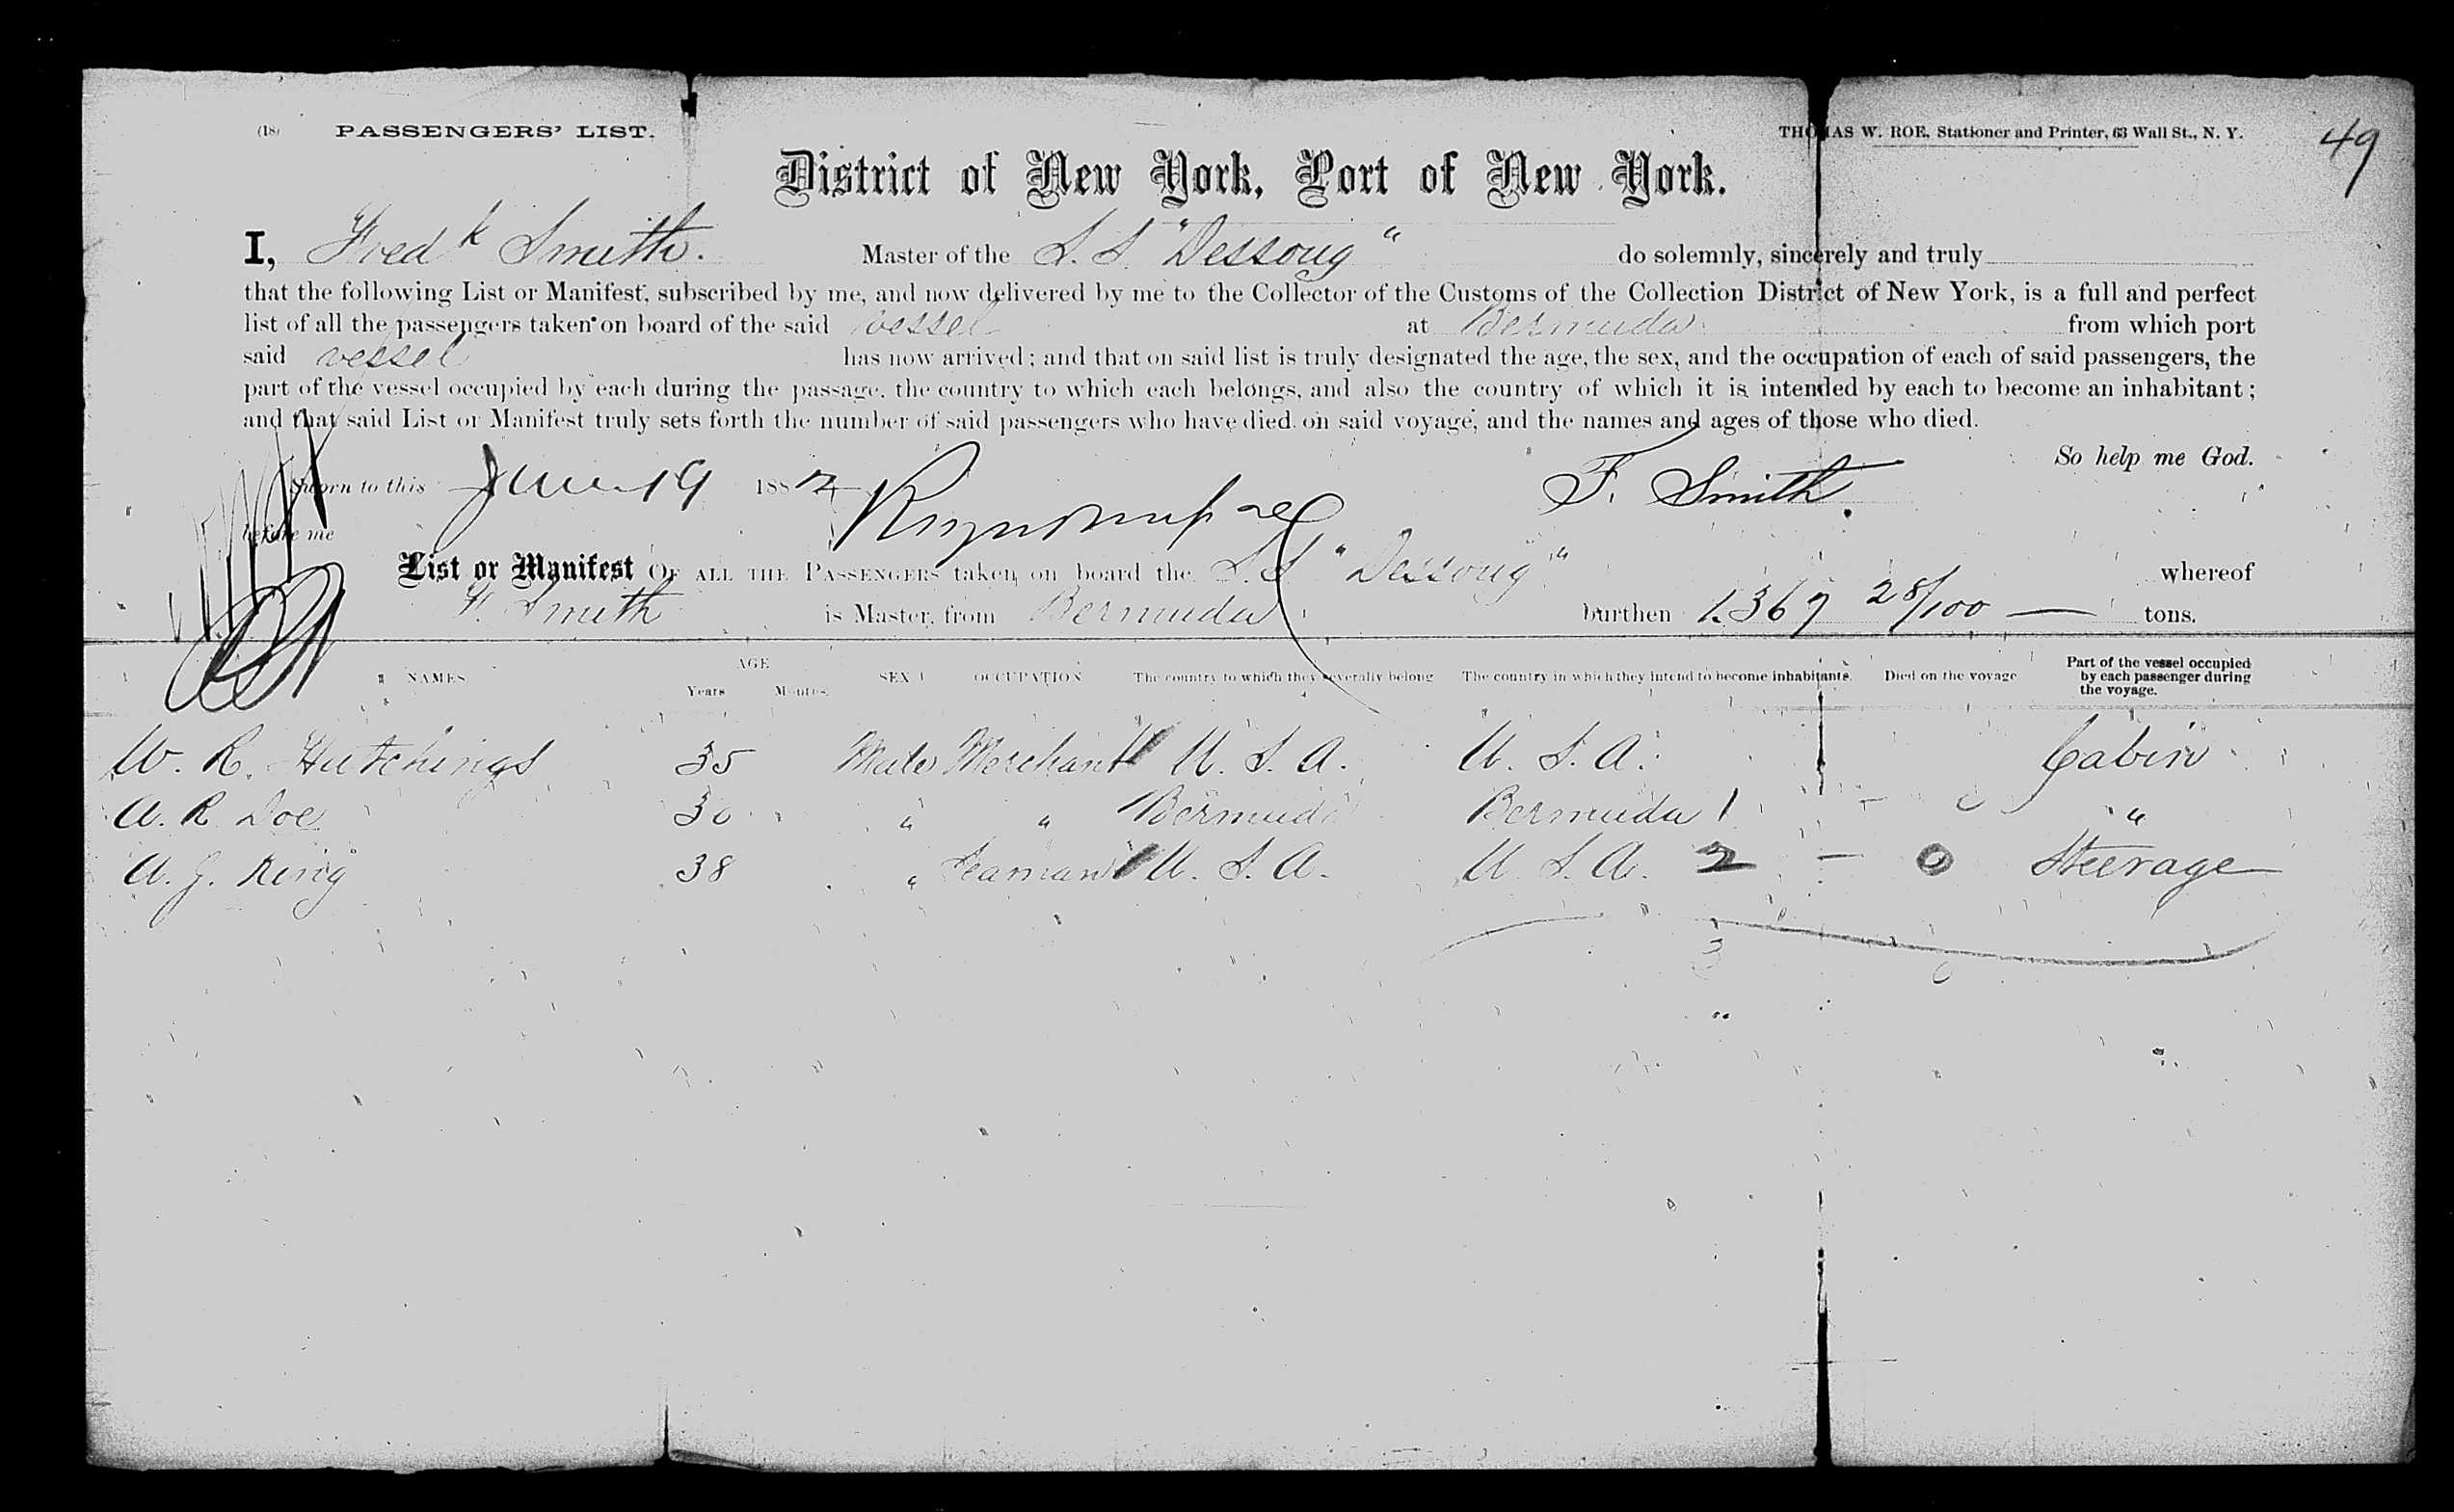 (18) PASSENGERS' LIST. THOMAS W. ROE, Stationer and Printer, 63 Wall St., N. Y. 49
District of New York, Port of New York.
I, Fredk Smith. Master of the S. S. "Dessoug" do solemnly, sincerely and truly
that the following List or Manifest, subscribed by me, and now delivered by me to the Collector of the Customs of the Collection District of New York, is a full and perfect
list of all the passengers taken on board of the said vessel at Bermuda from which port
said vessel has now arrived; and that on said list is truly designated the age, the sex, and the occupation of each of said passengers, the
part of the vessel occupied by each during the passage, the country to which each belongs, and also the country of which it is intended by each to become an inhabitant;
and that said List or Manifest truly sets forth the number of said passengers who have died on said voyage, and the names and ages of those who died.
So help me God.
Sworn to this June 19 1882 F. Smith.
before me
List or Manifest OF ALL THE PASSENGERS taken on board the S.S "Dessoug" whereof
F. Smith is Master, from Bermuda burthen 1367 28/100 — tons.
NAMES AGE Years Months SEX OCCUPATION The country to which they severally belong The country in which they intend to become inhabitants. Died on the voyage Part of the vessel occupied by each passenger during the voyage.
W. R. Hutchings 35 Male Merchant U. S. A. U. S. A. Cabin
A. R Doe 30 " " Bermuda Bermuda 1 — 0 "
A. J. King 38 " Seaman U. S. A. U. S. A. 2 — 0 Steerage
3 0